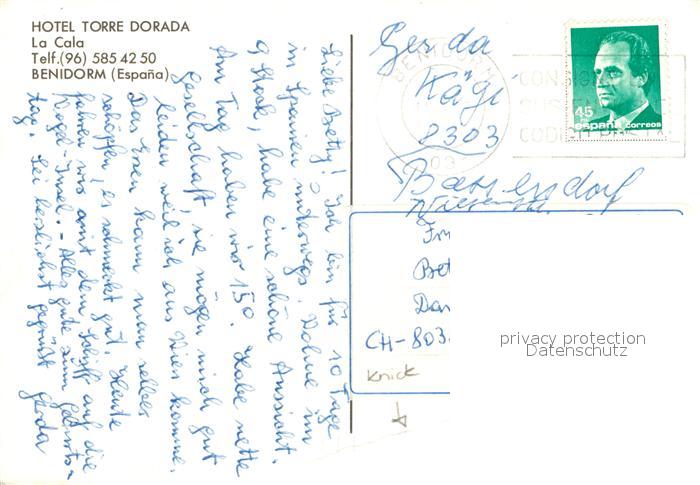 HOTEL TORRE DORADA
La Cala
Telf.(96) 585 42 50
BENIDORM (España)
Liebe Betty! Ich bin für 10 Tage
in Spanien unterwegs. Wohne im
9 Stock, habe eine schöne Aussicht.
Am Tag haben wir 15°. Habe nette
Gesellschaft, sie mögen mich gut
leiden weil ich aus Dies komme.
Das Essen kann man selber
schöpfen, es schmeckt gut. Heute
fahren wir mit dem Schiff auf die
Vogel-Insel. - Alles gute zum Geburts-
tag. Sei herzlichst gegrüßt Gerda
Gerda
Kägi
8303
Bassersdorf
BENIDORM
CONSIGNE
CODIGO POSTAL
45
españa correos
Fr
Bet
Dar
CH-803
Knick
privacy protection
Datenschutz